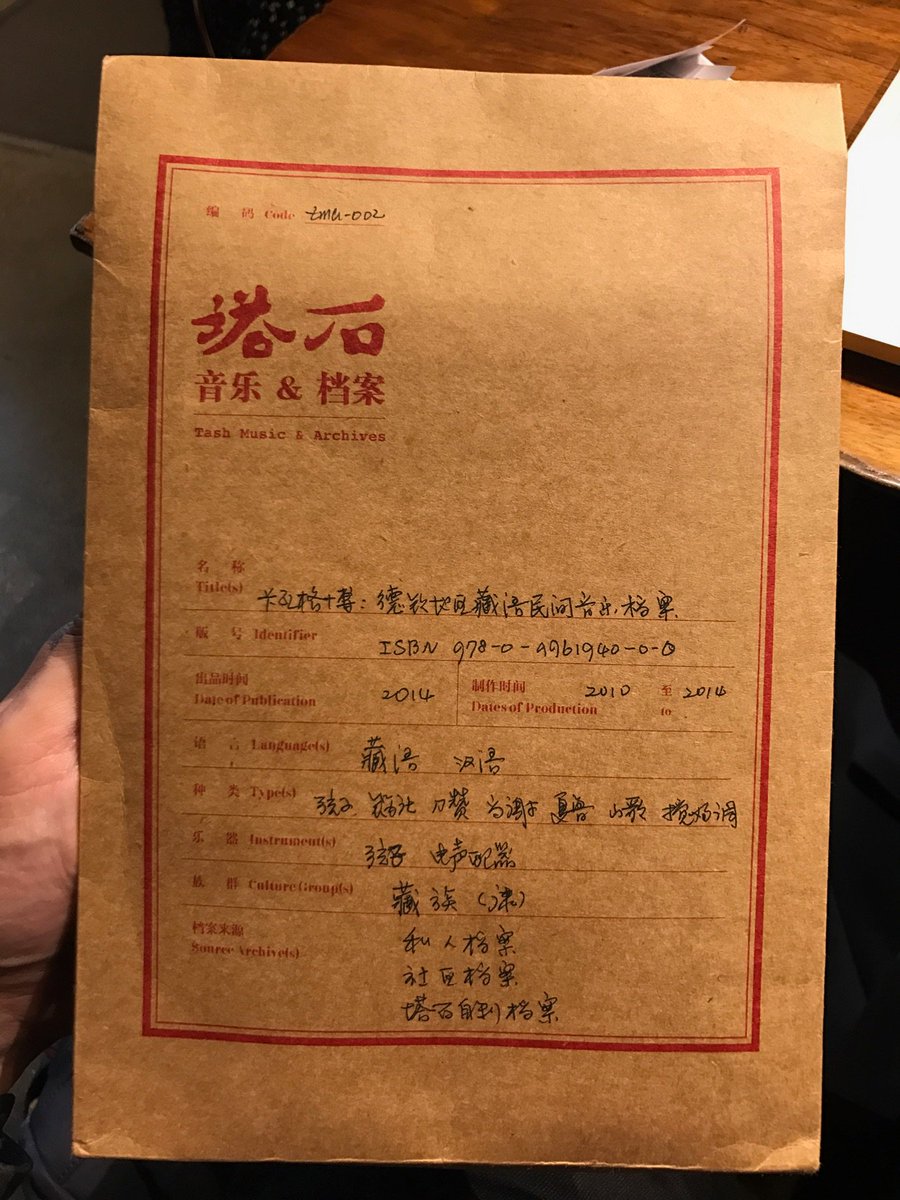 编 码 Code tma-002
塔石
音乐 & 档案
Tash Music & Archives
名 称
Title(s) 卡瓦格博：德钦地区藏语民间音乐档案
版 号 Identifier ISBN 978-0-9961940-0-0
出品时间
Date of Publication 2014
制作时间 2010 至 2014
Dates of Production to
语 言 Language(s) 藏语 汉语
种 类 Type(s) 弦子 山歌
乐 器 Instrument(s) 弦子 电声配器
族 群 Culture Group(s) 藏族
档案来源 私人档案
Source Archive(s)
社区档案
塔石自制档案